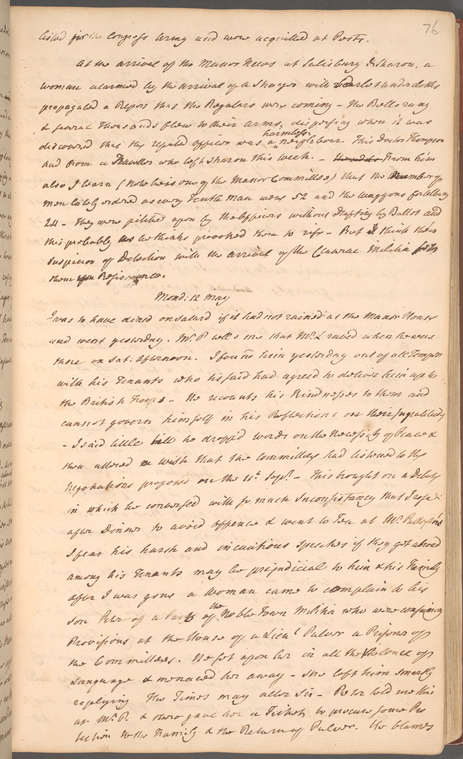 76
listed for the Congress Army and were acquitted at Ports.
At the arrival of the Manor News at Salisbury & Sharon, a
woman alarmed by the arrival of a Stranger with Scarlet underclothes
propagated a Report that the Regulars were coming — the Bells rung
& several Thousands flew to their Arms, dispersing when it was
discovered that the reputed officer was a harmless neighbour. This Doctor Thompson
had from a Traveller who left Sharon this Week. — From him
also I learn (who is one of the Manor Committee) that the Number of
men lately ordered as every Tenth Man were 52 and the Waggons for Albany
24 — They were pitched upon by the Officers without Drafting by Ballot and
this probably as he thinks provoked them to rise — But I think their
Suspicion of Detection with the arrival of the Claverac Militia
them upon Resistance.
Mond: 12 May
I was to have dined on Saturd if it had not rained at the Manor House
and went yesterday. Mr. P tells me that Mr. L raved when he was
there on Sat. Afternoon. I found him yesterday out of all Temper
with his Tenants who he said had agreed to deliver him up to
the British Troops — He recounts his Kindnesses to them and
cannot govern himself in his Reflections on their Ingratitude
— I said little till he dropped words on the Necessity of Peace &
then uttered a Wish that the Committees had listened to the
Negotiations proposed on the Sept. — This brought on a Debate
in which he conversed with so much Inconsistency that I
after Dinner to avoid Offence & went to Tea at Mr. Patterson's
I fear his harsh and incautious Speeches if they get abroad
among his Tenants may be prejudicial to him & his Family
After I was gone a Woman came to complain to his
Son Peter of a Party of the Noble Town Militia who were consuming
Provisions at the House of a Lieut Pulver a Prisoner of
the Committees. He set upon her in all the Violence of
Language & menaced her away — She left him smartly
replying The Times may alter Sir — Peter told me this
at Mr. P. & there gave her a Ticket to procure some Pro
tection to the Family & the Return of Pulver. He blames